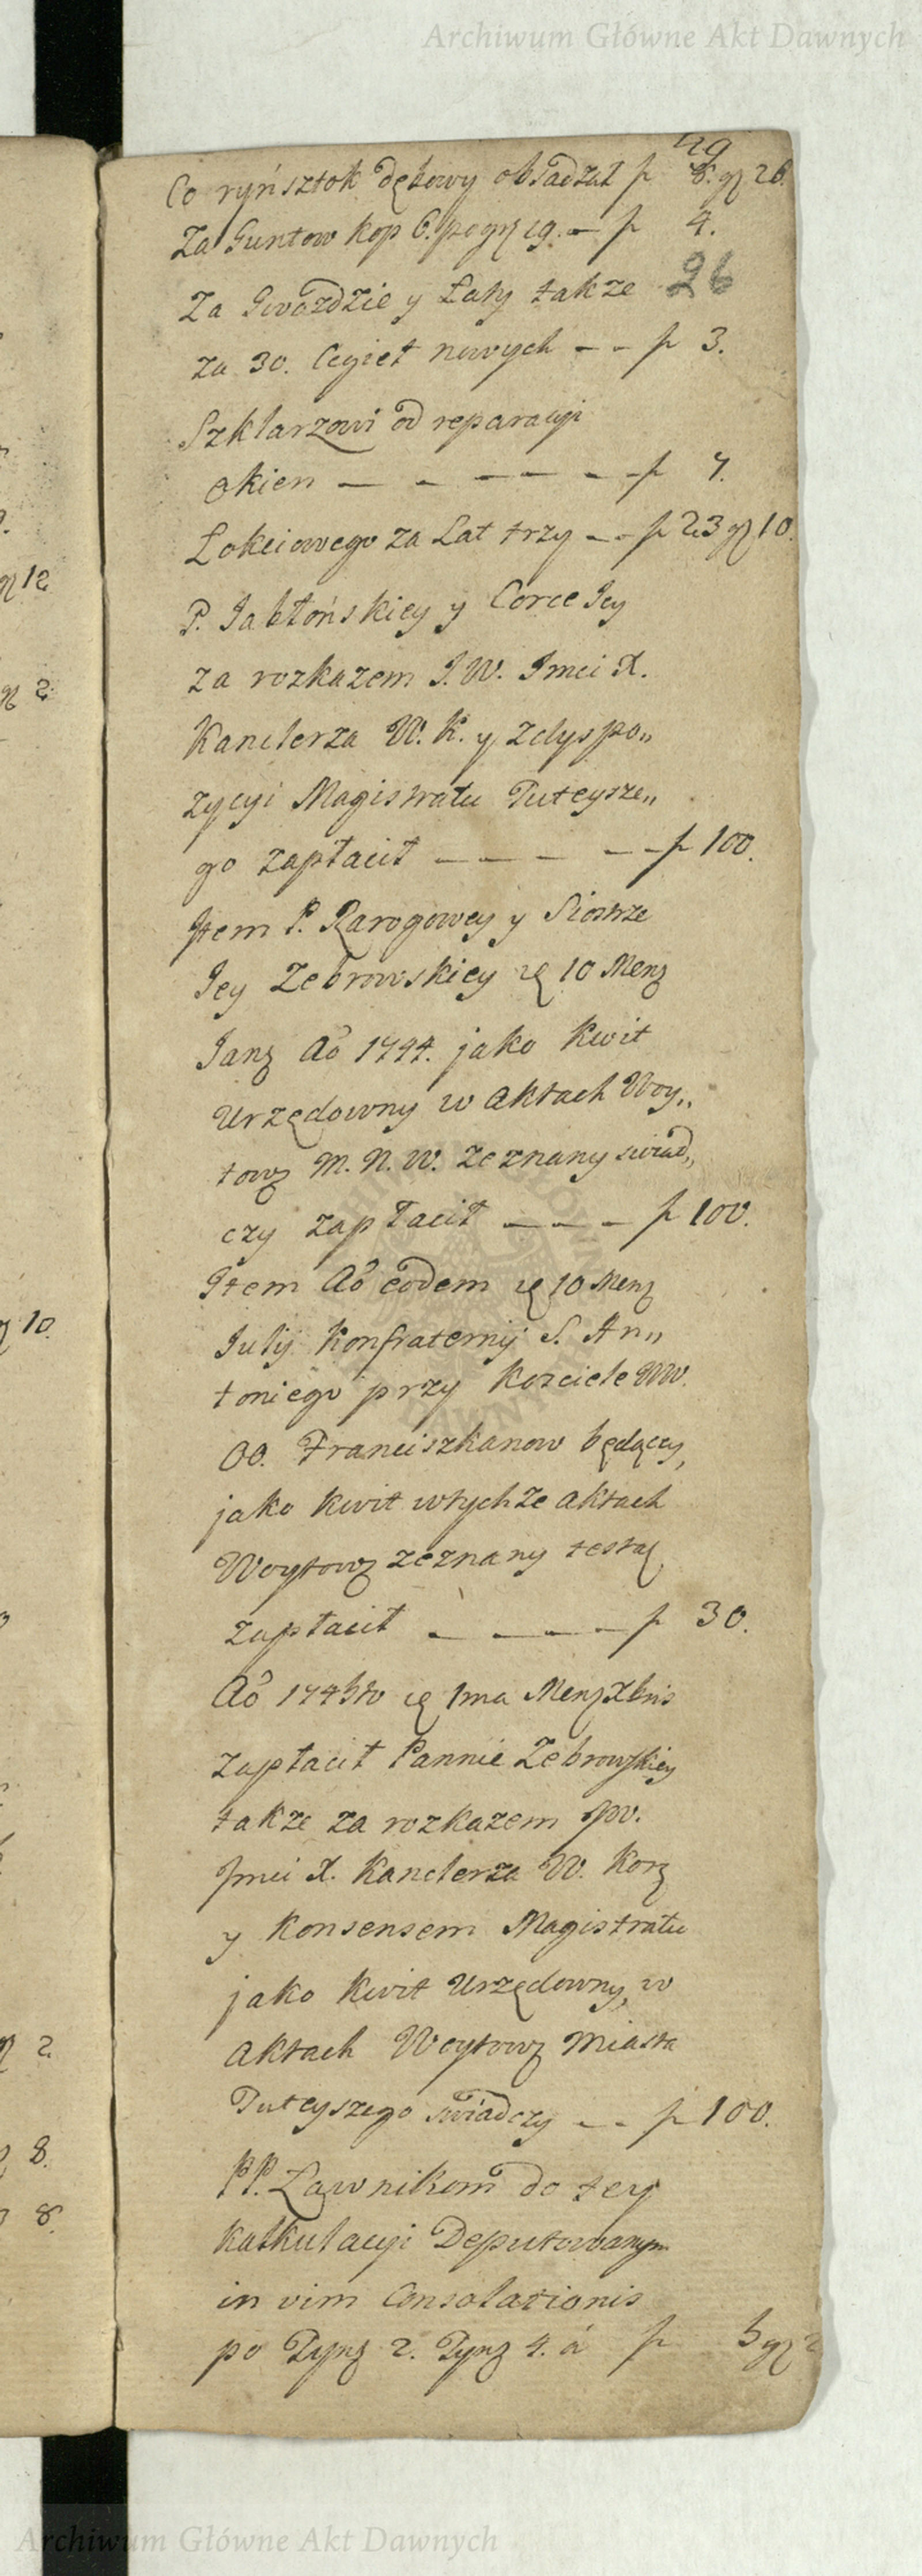 Archiwum Główne Akt Dawnych
29
Co ryńsztok dębowy obsadzał f 8. gr 26.
Za Guntow kop 6. po gr 19. — f 4.
26
Za Gwozdzie y Łaty takze
za 30. Cegieł nowych — — f 3.
Szklarzowi od reparacyi
okien — — — — — f 7.
Łokciowego za Lat trzy — — f 23 gr 10.
P. Jabłońskiey y Corce Jey
za rozkazem J. W. Jmci X.
Kanclerza W. K. y z dyspo„
zycyi Magistratu Tuteysze„
go zapłacił — — — — — f 100.
Item P. Rarogowey y Siostrze
Jey Zebrowskiey 10 Menz
Janz Aō 1744. jako Kwit
Urzędowny w Aktach Woy„
towz M. N. W. zeznany swiad„
czy zapłacił — — — f 100.
Item Aō eodem 10 Menz
Julij Konfraternij S. An„
toniego przy Kosciele WW.
OO. Franciszkanow będącey,
jako Kwit w tychze Aktach
Woytowz zeznany testat
zapłacił — — — — f 30.
Aō 1745to 1ma Menz Xbris
zapłacił Pannie Zebrowskiey
takze za rozkazem JW.
Jmci X. Kanclerza W. Korz
y Konsensem Magistratu
jako Kwit Urzędowny, w
Aktach Woytowz Miasta
Tuteyszego swiadczy — — f 100.
PP. Ławnikom do tey
Kalkulacyi Deputowanym
in vim Consolationis
po Tynz 2. Tynz 4. á f 5 gr 2
gr 12
gr 2
10.
2
8.
8.
Archiwum Główne Akt Dawnych